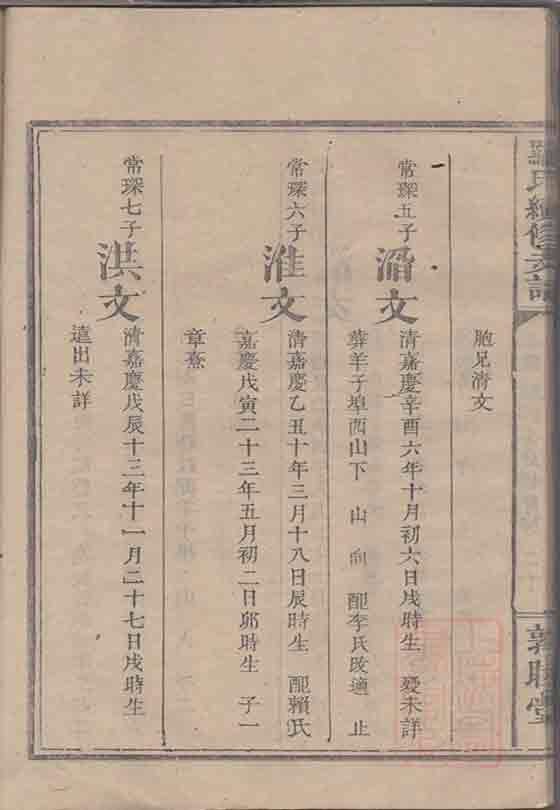 羅氏續修支譜
敦睦堂
胞兄清文
常琛五子
濳文
清嘉慶辛酉六年十月初六日戌時生 歿未詳
葬羊子埠西山下 山 向 配李氏改適 止
常琛六子
淮文
清嘉慶乙丑十年三月十八日辰時生 配賴氏
嘉慶戊寅二十三年五月初二日卯時生 子一
章熹
常琛七子
洪文
清嘉慶戊辰十三年十一月二十七日戌時生
遠出未詳